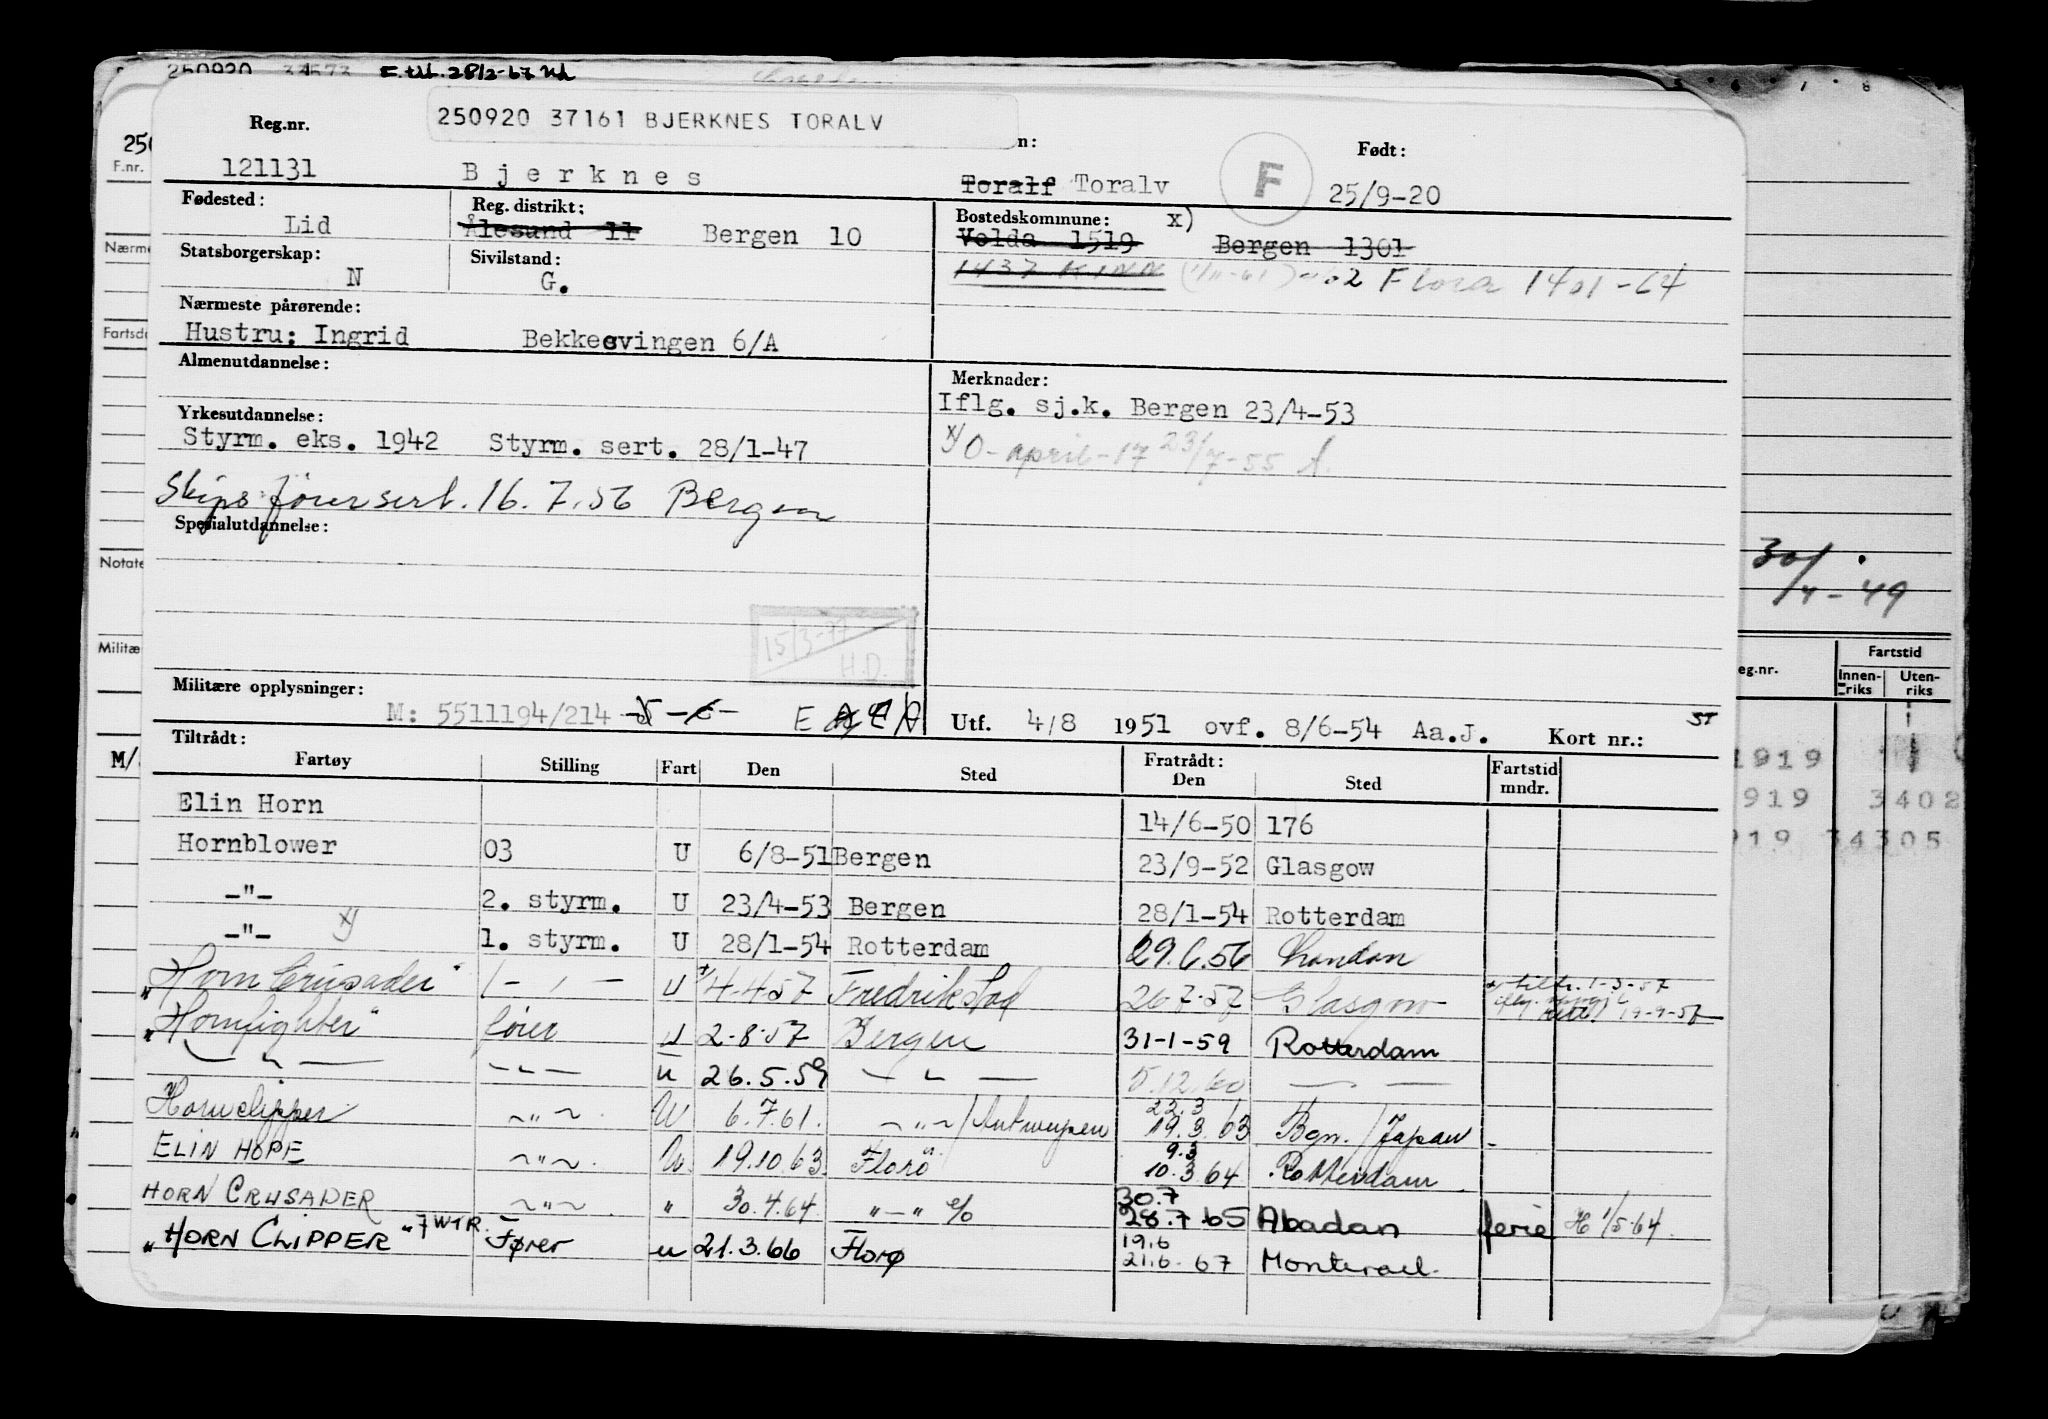 250920 F. tll. 28/2-67
Reg.nr. 250920 37161 BJERKNES TORALV n: Født:
121131 Bjerknes Toralf Toralv F 25/9-20
Fødested: Reg. distrikt: Bostedskommune: x)
Lid Ålesund 11 Bergen 10 Volda 1519 Bergen 1301
Statsborgerskap: Sivilstand: 1437 KINN (1/11-61) Flora 1401-64
N G.
Nærmeste pårørende:
Hustru: Ingrid Bekkesvingen 6/A
Almenutdannelse: Merknader:
Iflg. sj.k. Bergen 23/4-53
Yrkesutdannelse:
Styrm. eks. 1942 Styrm. sert. 28/1-47 x/ O-april-17 23/7-55
Skipsførersert. 16.7.56 Bergen
Spesialutdannelse:
15/3-77
H.D.
30/4-49
Militære opplysninger:
M: 5511194/214 E Utf. 4/8 1951 ovf. 8/6-54 Aa.J. Kort nr.:
Tiltrådt: Fratrådt:
Fartøy Stilling Fart Den Sted Den Sted Fartstid mndr.
Elin Horn 14/6-50 176
Hornblower 03 U 6/8-51 Bergen 23/9-52 Glasgow
-"- 2. styrm. U 23/4-53 Bergen 28/1-54 Rotterdam
-"- x/ 1. styrm. U 28/1-54 Rotterdam 29.6.56 London
"Horn Crusader" 1 - , - U +4-4-57 Fredrikstad 26.7.57 Glasgow tiltr. 1-3-57
"Hornfighter" fører U 2-8-57 Bergen 31-1-59 Rotterdam
— " — — " — u 26.5.59 — " — 5.12.60 — . —
Hornclipper ~"~ U 6.7.61. ~"~/Antwerpen 22.3 19.3.63 Bgn./Japan
ELIN HOPE ~"~. U. 19.10.63. Florø 9.3 10.3.64 Rotterdam
HORN CRUSADER ~"~. " 30.4.64. "—" 30.7 28.7 65 Abadan ferie 1/5-64.
"HORN CLIPPER" 7WTR. Fører u 21.3.66 Florø 19.6 21.6-67 Montreal.
250
F.nr.
Nærme
Fartsd
Notate
Militæ
M/
eg.nr. Fartstid
Innenriks Utenriks
1919
919 3402
919 34305